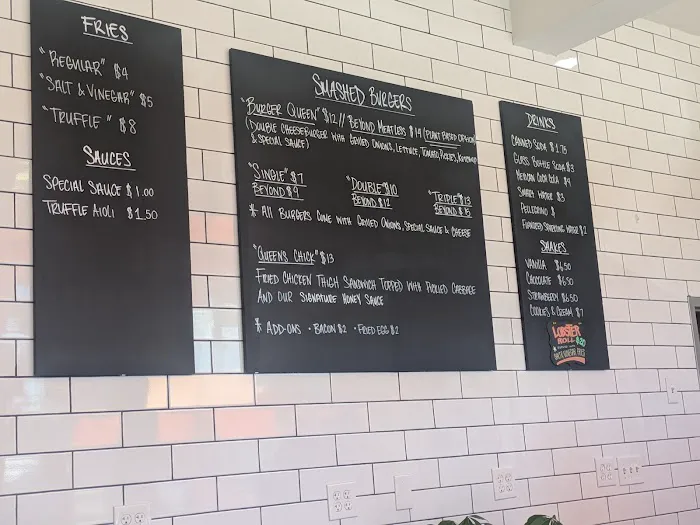 FRIES
"REGULAR" $4
"SALT & VINEGAR" $5
"TRUFFLE" $8
SAUCES
SPECIAL SAUCE $1.00
TRUFFLE AIOLI $1.50
SMASHED BURGERS
"BURGER QUEEN" $12 // BEYOND MEATLESS $14 (PLANT BASED OPTION
(DOUBLE CHEESEBURGER WITH GRILLED ONIONS, LETTUCE, TOMATO, PICKLES,
& SPECIAL SAUCE)
"SINGLE" $7
BEYOND $9
"DOUBLE" $10
BEYOND $12
"TRIPLE" $13
BEYOND $15
* ALL BURGERS COME WITH GRILLED ONIONS, SPECIAL SAUCE & CHEESE
"QUEENS CHICK" $13
FRIED CHICKEN THIGH SANDWICH TOPPED WITH PICKLED CABBAGE
AND OUR SIGNATURE HONEY SAUCE
* ADD-ONS • BACON $2 • FRIED EGG $2
DRINKS
CANNED SODA $1.75
GLASS BOTTLE SODA $3
MEXICAN COCA COLA $4
SMART WATER $3
PELLEGRINO $
FLAVORED SPARKLING WATER $2
SHAKES
VANILLA $6.50
CHOCOLATE $6.50
STRAWBERRY $6.50
COOKIES & CREAM $7
LOBSTER
ROLL $20